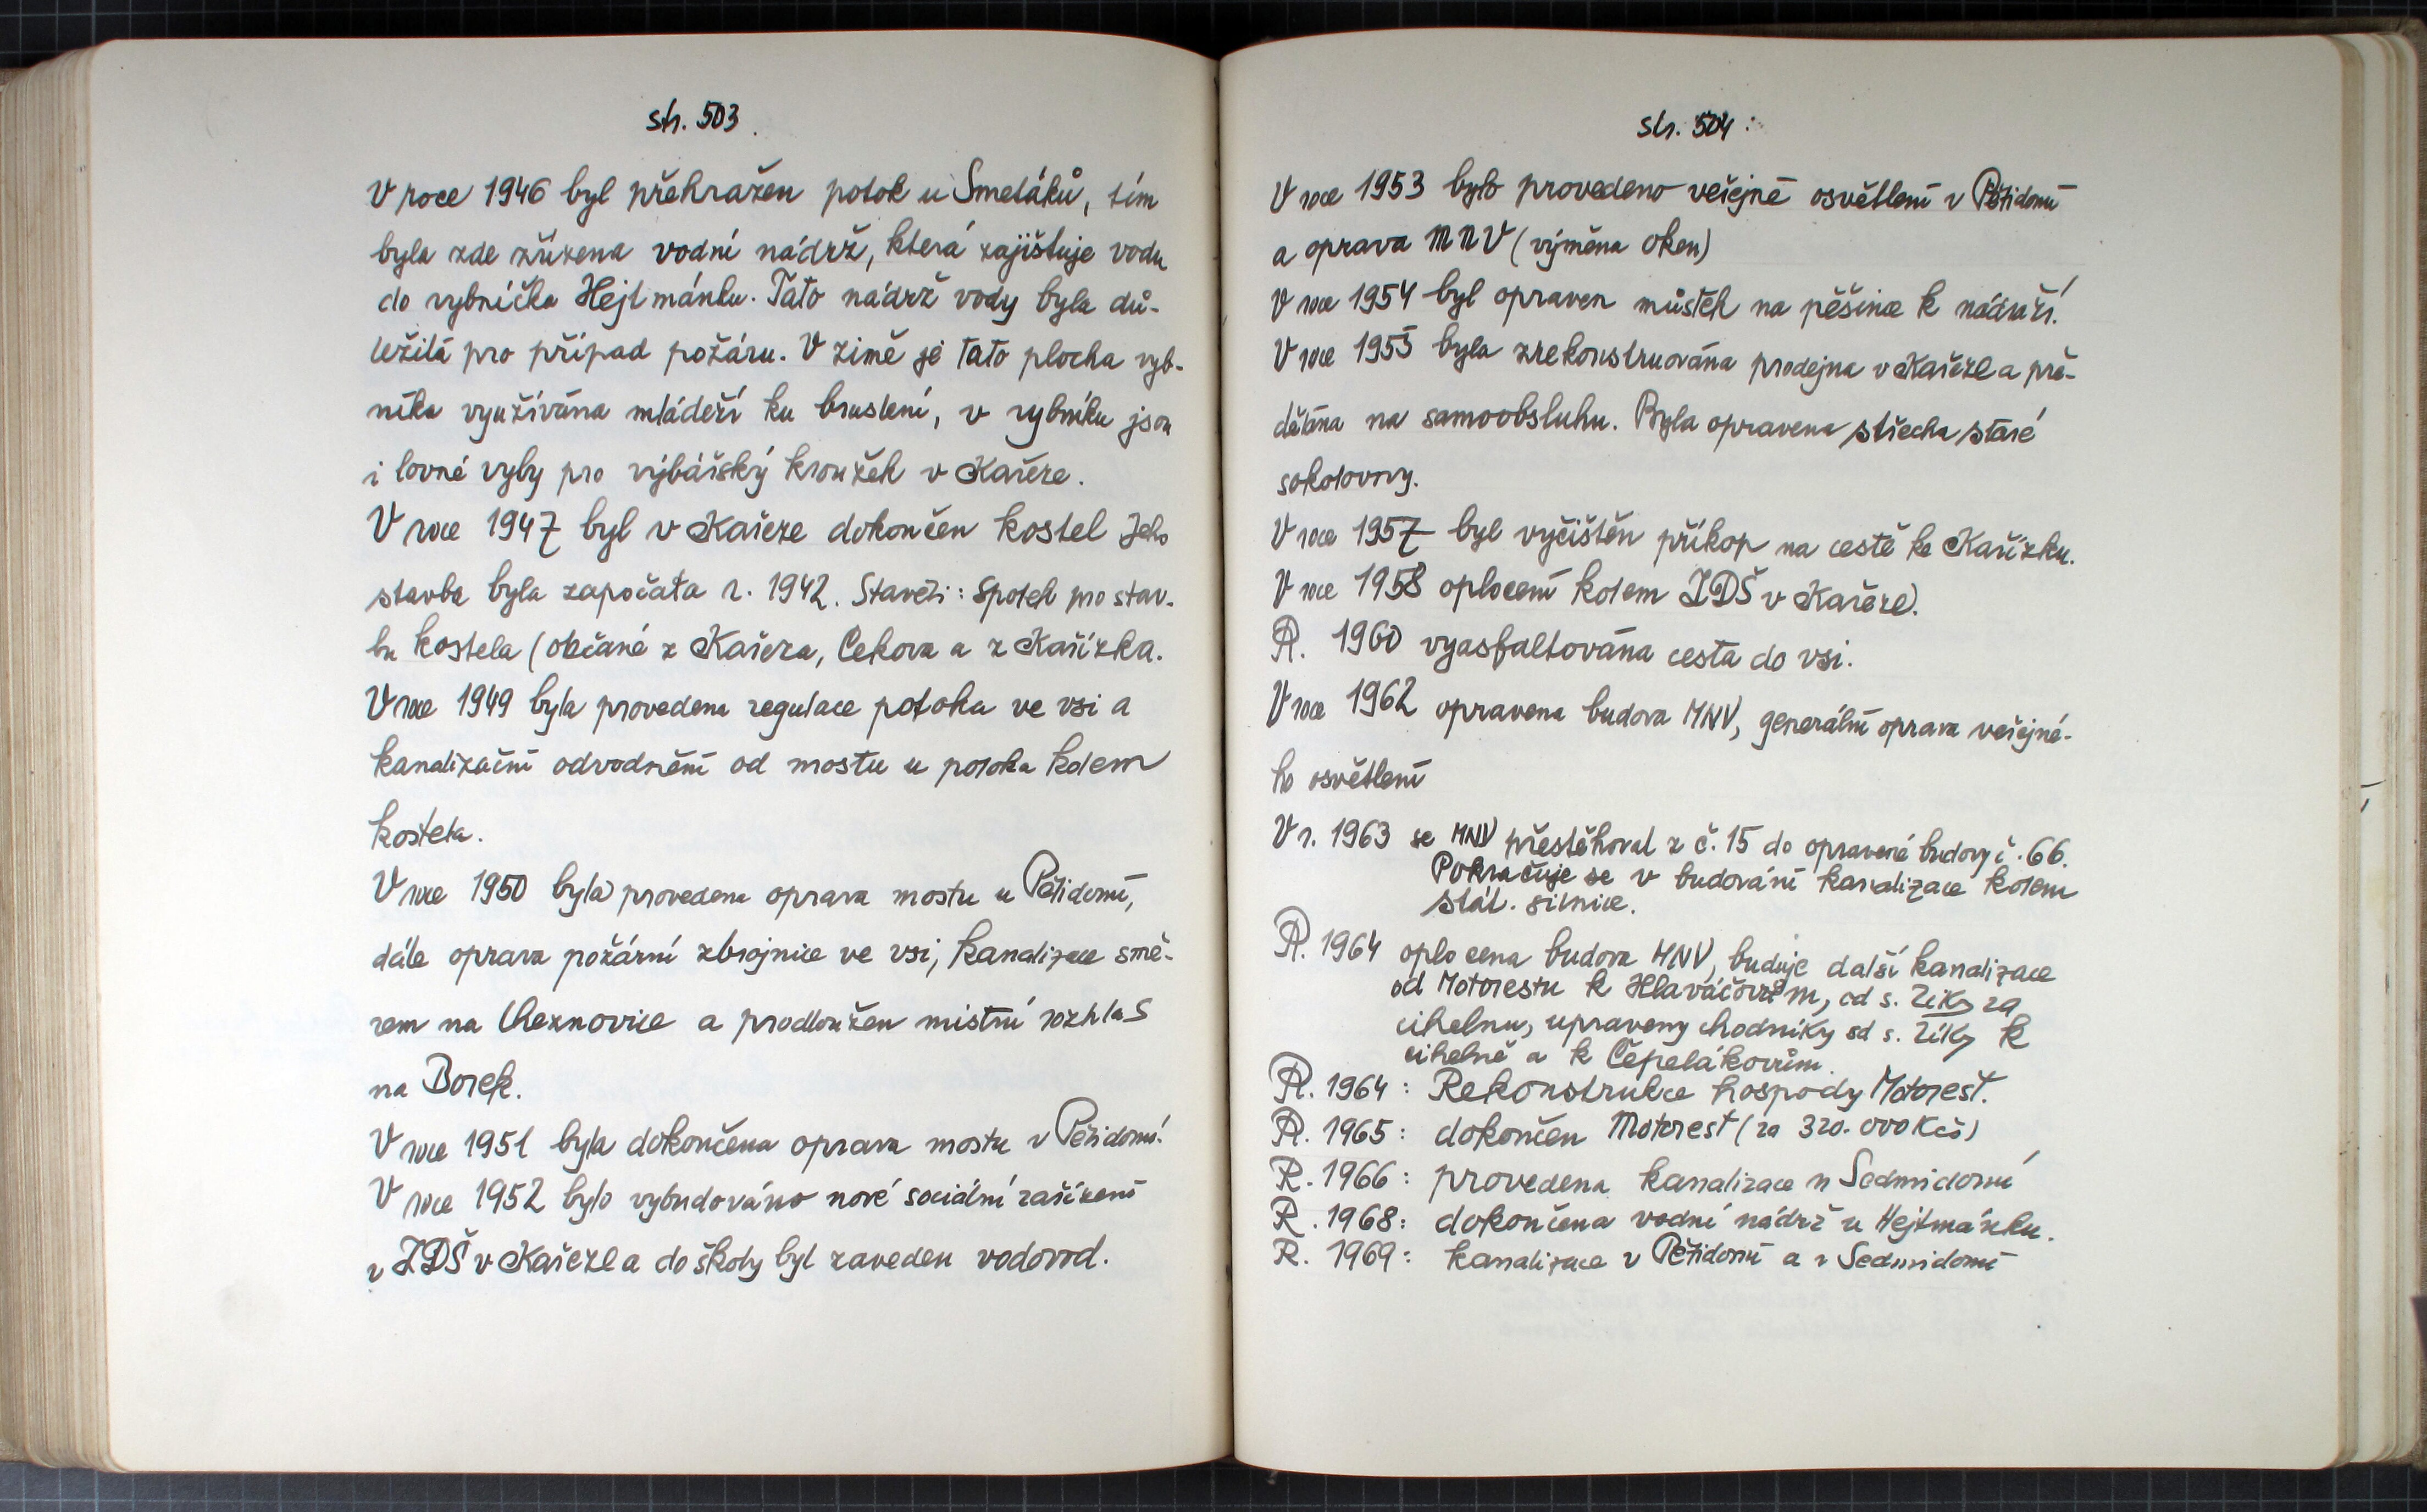 str. 503.
V roce 1946 byl přehražen potok u Smetáků, tím
byla zde zřízena vodní nádrž, která zajišťuje vodu
do rybníčka Hejtmánku. Tato nádrž vody byla dů-
ležitá pro případ požáru. V zimě je tato plocha ryb-
níka využívána mládeží ku bruslení, v rybníku jsou
i lovné ryby pro rybářský kroužek v Kařeze.
V roce 1947 byl v Kařeze dokončen kostel Jeho
stavba byla započata r. 1942. Stavěli: Spolek pro stav-
bu kostela (občané z Kařeza, Cekova a z Kařízka.
V roce 1949 byla provedena regulace potoka ve vsi a
kanalizační odvodnění od mostu u potoka kolem
kostela.
V roce 1950 byla provedena oprava mostu u Pětidomí,
dále oprava požární zbrojnice ve vsi, kanalizace smě-
rem na Cheznovice a prodloužen místní rozhlas
na Borek.
V roce 1951 byla dokončena oprava mostu v Pětidomí.
V roce 1952 bylo vybudováno nové sociální zařízení
v ZDŠ v Kařeze a do školy byl zaveden vodovod.
str. 504:
V roce 1953 bylo provedeno veřejné osvětlení v Pětidomí
a oprava MNV (výměna oken)
V roce 1954 byl opraven můstek na pěšince k nádraží.
V roce 1955 byla zrekonstruována prodejna v Kařeze a pře-
dělána na samoobsluhu. Byla opravena střecha staré
sokolovny.
V roce 1957 byl vyčištěn příkop na cestě ke Kařízku.
V roce 1958 oplocení kolem ZDŠ v Kařeze.
R. 1960 vyasfaltována cesta do vsi.
V roce 1962 opravena budova MNV, generální oprava veřejné-
ho osvětlení
V r. 1963 se MNV přestěhoval z č. 15 do opravené budovy č. 66.
Pokračuje se v budování kanalizace kolem
stát. silnice.
R. 1964 oplocena budova MNV, buduje další kanalizace
od Motorestu k Hlaváčovům, od s. Ziky za
cihelnu, upraveny chodníky od s. Ziky k
cihelně a k Čepelákovům.
R. 1964: Rekonstrukce hospody Motorest.
R. 1965: dokončen Motorest (za 320.000 Kčs)
R. 1966: provedena kanalizace u Sedmidomí
R. 1968: dokončena vodní nádrž u Hejtmánku.
R. 1969: kanalizace v Pětidomí a v Sedmidomí